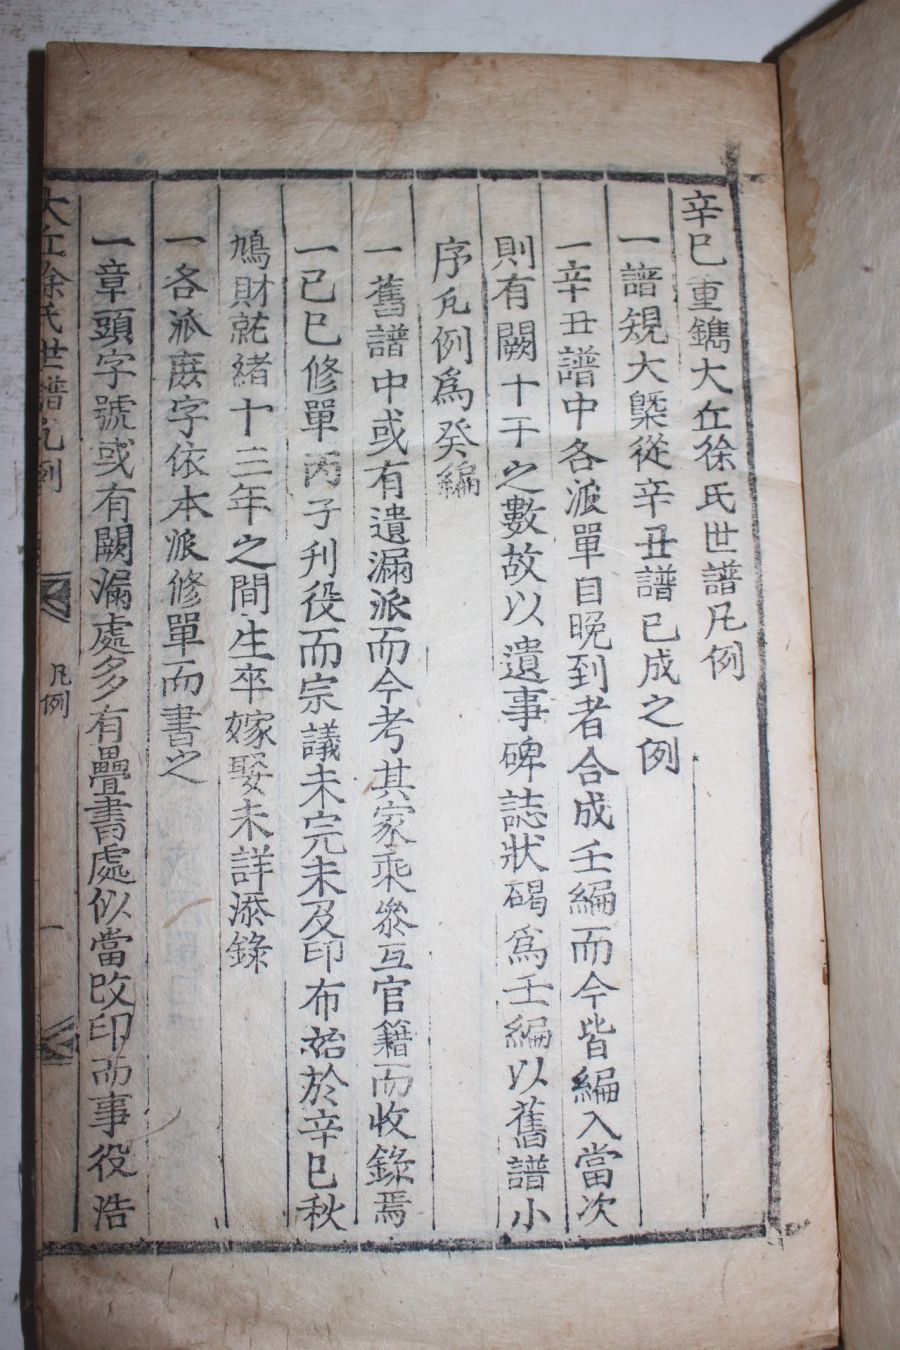 辛巳重鐫大丘徐氏世譜凡例
一譜規大槩從辛丑譜已成之例
一辛丑譜中各派單目晚到者合成壬編而今皆編入當次
則有闕十干之數故以遺事碑誌狀碣爲壬編以舊譜小
序凡例爲癸編
一舊譜中或有遺漏派而今考其家乘參互官籍而收錄焉
一己巳修單丙子刋役而宗議未完未及印布始於辛巳秋
鳩財就緒十三年之間生卒嫁娶未詳添錄
一各派庶字依本派修單而書之
一章頭字號或有闕漏處多有疊書處似當改印而事役浩
大丘徐氏世譜凡例
凡例
一